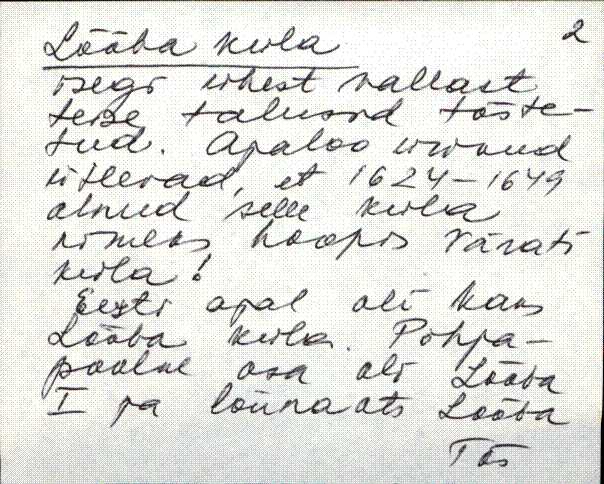 Lööba küla 2
isegi ühest vallast
teise talusid tõste-
tud. Ajaloo uurinud
ütlevad, et 1624-1649
olnud selle küla
nimeks hoopis Värati
küla!
Eesti ajal oli kaks
Lööba küla. Põhja-
poolne osa oli Lööba
I ja lõunaots Lööba
Tõs